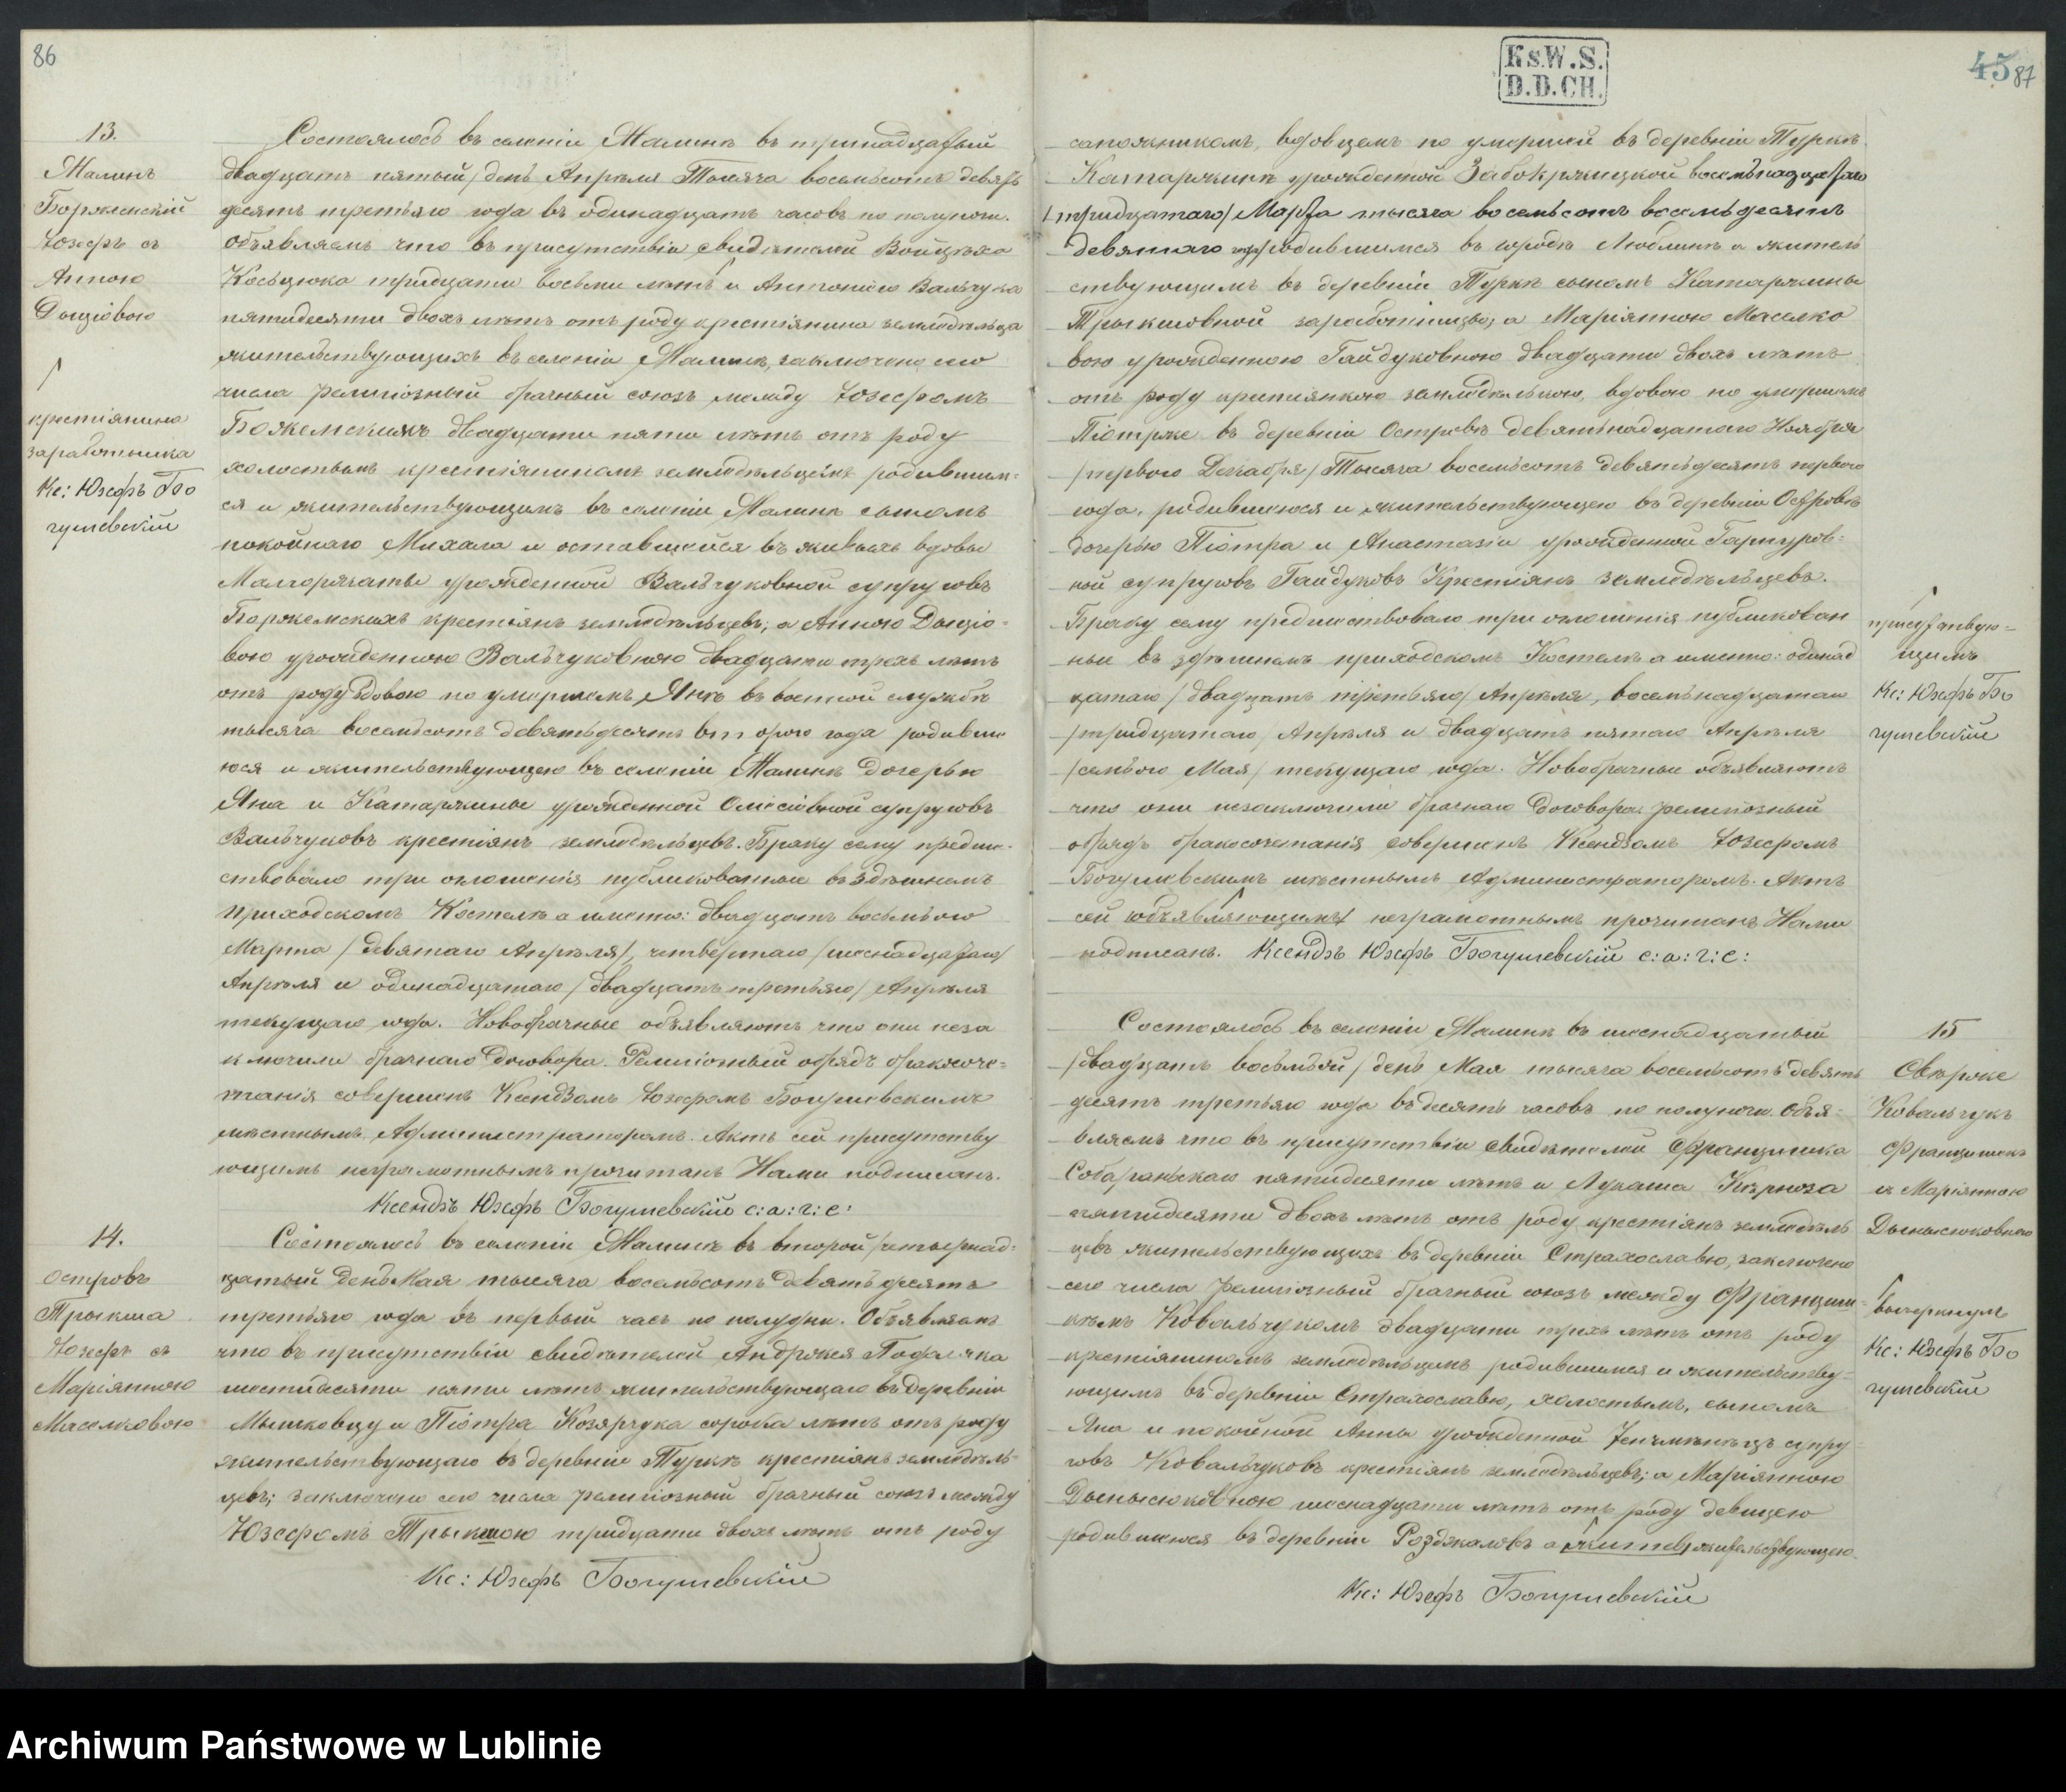 86
13.
Малинъ
Боржемскій
Юзефъ съ
Анною
Дыціовою
крестіянина
заработника
Кс: Юзефъ Бо
гушевскій
Состоялось въ селеніи Малинъ въ тринадцатый
двадцать пятый/ день Апрѣля Тысяча восемьсотъ девять
десятъ третьяго года въ одинадцать часовъ по полуночи.
Объявляемъ что въ присутствіи свидѣтелей Войцѣха
Косьцюка тридцати восьми лѣтъ и Антонiю Вальчука
пятидесяти двохъ лѣтъ отъ роду крестіянина земледѣльца
жительствующихъ въ селеніи Малинъ, заключено сего
числа религіозный брачный союзъ между Юзефомъ
Божемскимъ двадцати пяти лѣтъ отъ роду
холостымъ крестіяниномъ земледѣльцемъ родившим-
ся и жительствующимъ въ селеніи Малинъ сыномъ
покойнаго Михала и оставшейся въ живыхъ вдовы
Малгоржаты урожденной Вальчуковной супруговъ
Боржемскихъ крестіянъ земледѣльцевъ; а Анною Дыціо-
вою урожденною Вальчуковною двадцати трехъ лѣтъ
отъ роду вдовою по умершемъ Янѣ въ военной службѣ
тысяча восемьсотъ девятьдесятъ второго года родивше
юся и жительствующею въ селеніи Малинъ дочерью
Яна и Катаржины урожденной супруговъ
Вальчуковъ крестіянъ земледѣльцевъ. Браку сему предше-
ствовало три оглошенія публикованные въ здѣшнемъ
приходскомъ Костелѣ а именно: двадцать восьмого
Марта /девятаго Апрѣля/, четвертаго /шеснадцатаго/
Апрѣля и одинадцатаго /двадцать третьяго/ Апрѣля
текущаго года. Новобрачные объявляютъ что они неза
ключили брачнаго договора. Религіозный обрядъ бракосоче-
танія совершенъ Ксендзомъ Юзефомъ Богушевскимъ
мѣстнымъ Администраторомъ. Актъ сей присутству
ющимъ неграмотнымъ прочитанъ Нами подписанъ.
Ксендзъ Юзефъ Богушевскій с: а: г: с:
14.
Островъ
Трыкша
Юзефъ съ
Маріянною
Маселковою
Состоялось въ селеніи Малинъ въ второй /четырнад-
цатый день Мая тысяча восемьсотъ девятьдесятъ
третьяго года въ первый часъ по полудни. Объявляемъ
что въ присутствіи свидѣтелей Андржея
шестидесяти пяти лѣтъ жительствующаго въ деревнѣ
и Піотра Козярчука сорока лѣтъ отъ роду
жительствующаго въ деревнѣ Туркѣ крестіянъ земледѣль-
цевъ; заключено сего числа религіозный брачный союзъ между
Юзефомъ Трыкшою тридцати двохъ лѣтъ отъ роду
Кс: Юзефъ Богушевскій
Ks.W.S.
D.D.CH.
45 87
сапожникомъ, вдовцемъ по умершей въ деревнѣ Туркѣ
Катаржинѣ урожденной восемьнадцатаго
/тридцатаго/ Марта тысяча восемьсотъ восемьдесятъ
девятаго года родившимся въ городѣ Люблинѣ а житель
ствующимъ въ деревнѣ Туркѣ сыномъ Катаржины
Трыкшовной заработницы; а Маріянною Маселко
вою урожденною Гайдуковною двадцати двохъ лѣтъ
отъ роду крестіянкою земледѣлькою, вдовою по умершемъ
Піотрже въ деревнѣ Островѣ девятьнадцатаго Ноября
/первого Декабря/ Тысяча восемьсотъ девятьдесятъ первого
года, родившеюся и жительствующею въ деревнѣ Островѣ
дочерью Піотра и Анастазіи урожденной
ной супруговъ Гайдуковъ Крестіянъ земледѣльцевъ.
Браку сему предшествовало три оглошенія публикован
ные въ здѣшнемъ приходскомъ Костелѣ а именно: одинад
цатаго /двадцать третьяго/ Апрѣля, восемьнадцатаго
/тридцатаго/ Апрѣля и двадцать пятаго Апрѣля
/семього Мая/ текущаго года. Новобрачные объявляютъ
что они незаключили брачнаго договора; религіозный
обрядъ бракосочетанія совершенъ Ксендзомъ Юзефомъ
Богушевскимъ мѣстнымъ Администраторомъ. Актъ
сей объявляющимъ неграмотнымъ прочитанъ Нами
подписанъ. Ксендзъ Юзефъ Богушевскій с: а: г: с:
присутствую-
щимъ
Кс: Юзефъ Бо
гушевскій
15
Свѣрже
Ковальчукъ
Францишекъ
съ Маріянною
Дынысюковною
вычеркнулъ
Кс: Юзефъ Бо
гушевскій
Состоялось въ селеніи Малинъ въ шеснадцатый
/двадцать восьмьый/ день Мая тысяча восемьсотъ девять
десятъ третьяго года въ десять часовъ по полуночи. Объя-
вляемъ что въ присутствіи свидѣтелей Францишка
пятидесяти лѣтъ и Лукаша
пятидесяти двохъ лѣтъ отъ роду крестіянъ земледѣль
цевъ жительствующихъ въ деревнѣ Страхославю, заключено
сего числа религіозный брачный союзъ между Францишк-
комъ Ковальчукомъ двадцати трехъ лѣтъ отъ роду
крестіяниномъ земледѣльцемъ родившимся и жительству-
ющимъ въ деревнѣ Страхославю, холостымъ, сыномъ
Яна и покойной Анны урожденной супру-
говъ Ковальчуковъ крестіянъ земледѣльцевъ; а Маріянною
Дынысюковною шеснадцати лѣтъ отъ роду девицею
родившеюся въ деревнѣ Розджаловѣ а жительствующею
Кс: Юзефъ Богушевскій
Archiwum Państwowe w Lublinie